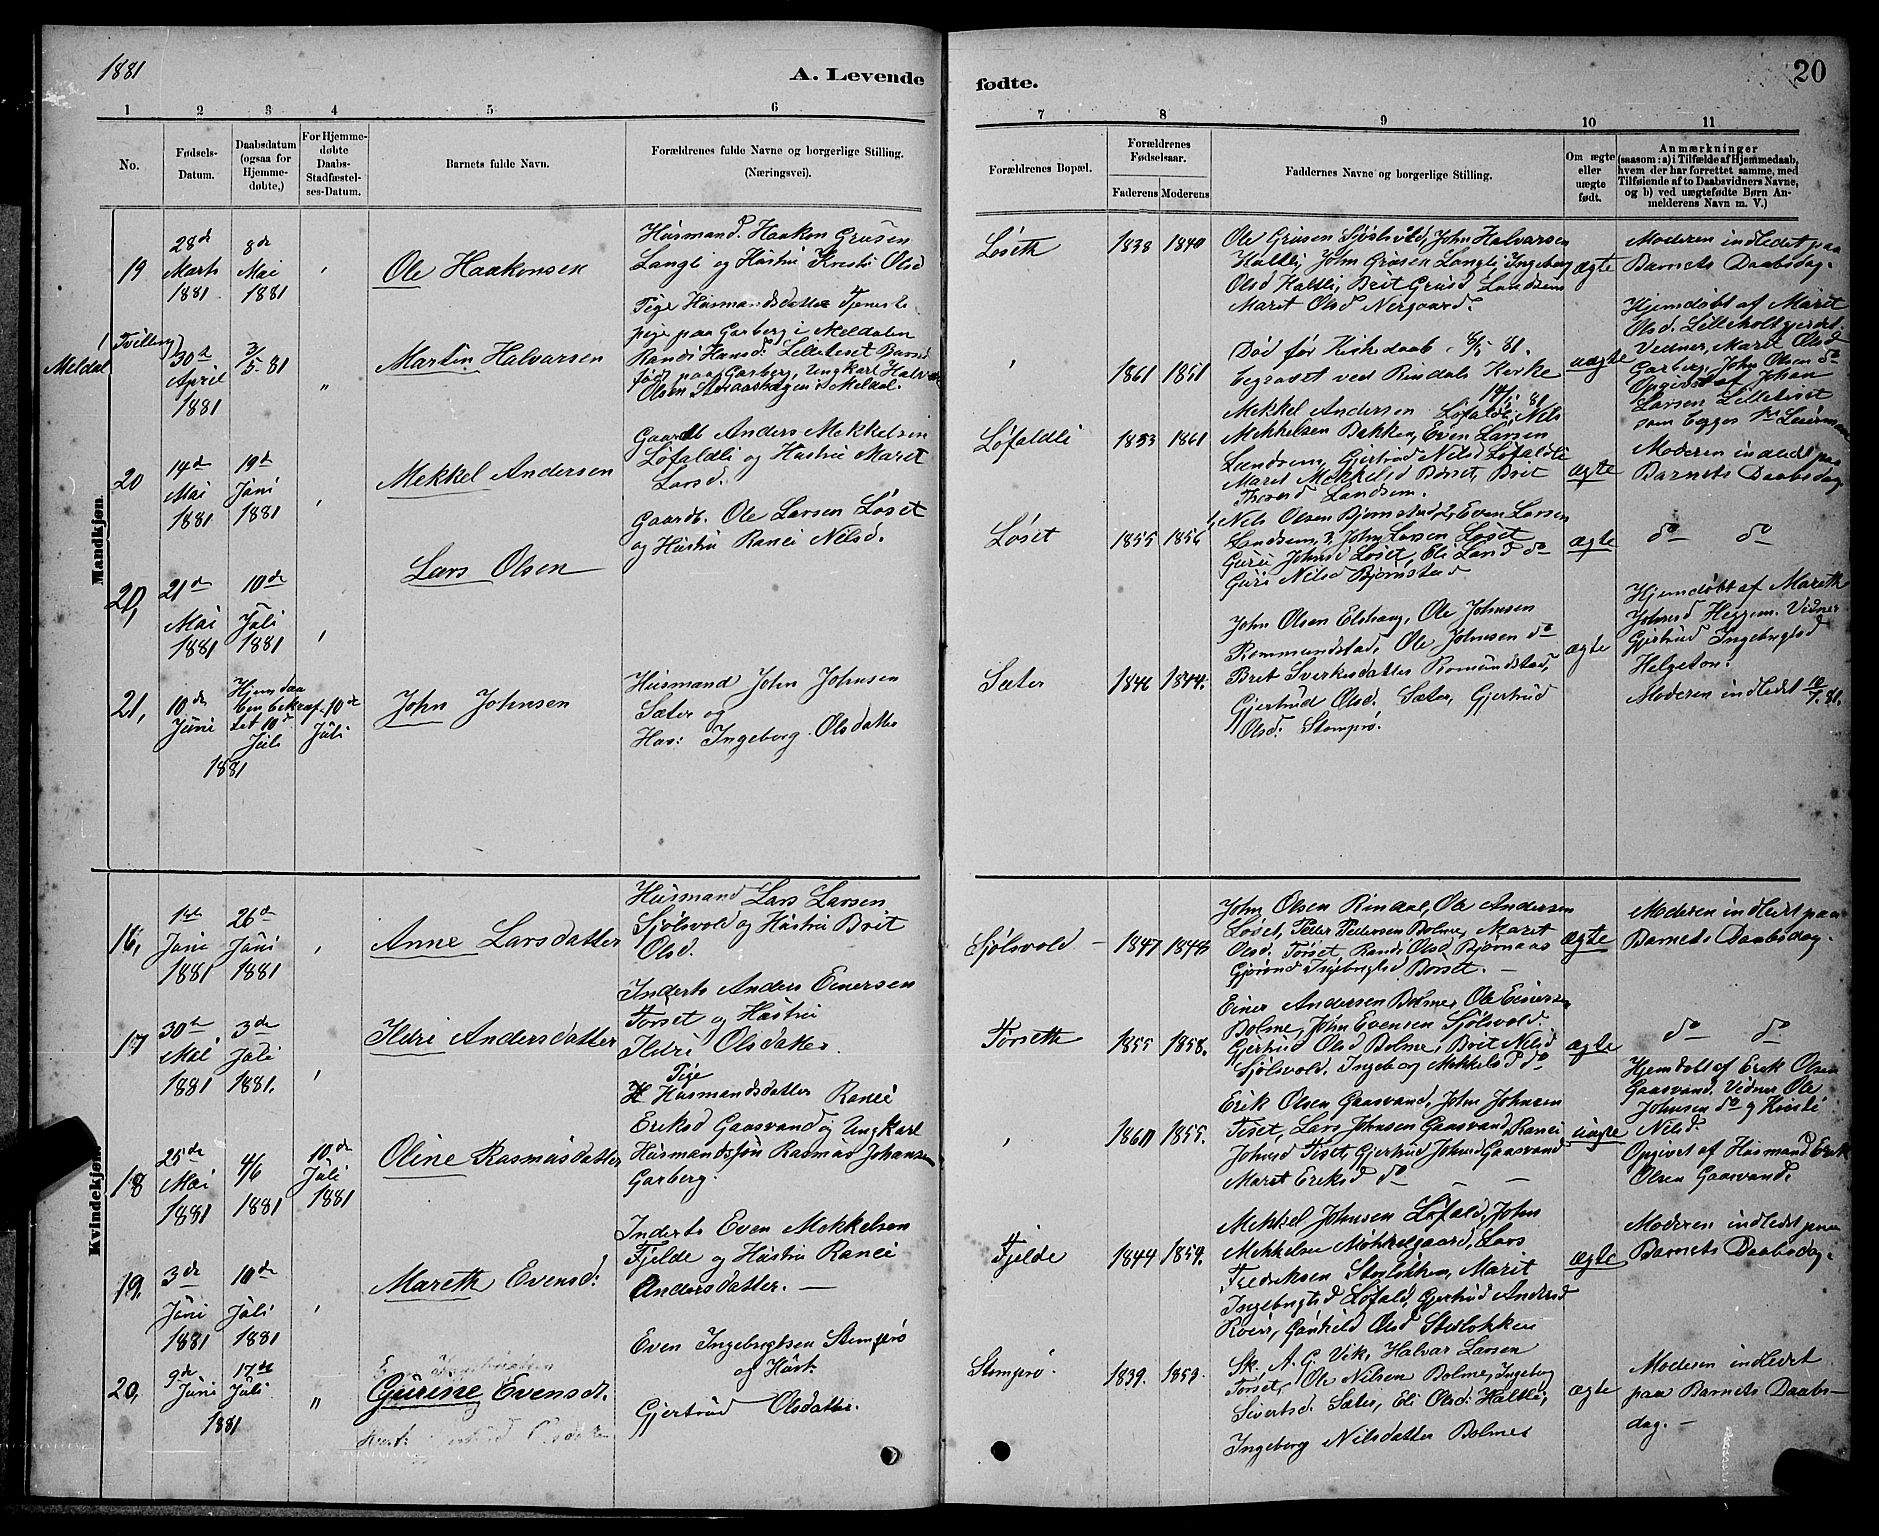 1881
A. Levende
fødte.
20
1 2 3 4 5 6
7 8 9 10 11
No.
Fødsels-
Datum.
Daabsdatum
(ogsaa for
Hjemme-
døbte,)
For Hjemme-
døbte
Daabs-
Stadfæstel-
ses-Datum.
Barnets fulde Navn.
Forældrenes fulde Navne og borgerlige Stilling.
(Næringsvei).
Forældrenes Bopæl.
Forældrenes
Fødselsaar.
Faderens Moderens
Faddernes Navne og borgerlige Stilling.
Om ægte
eller
uægte
født.
Anmærkninger
(saasom: a) i Tilfælde af Hjemmedaab,
hvem der har forrettet samme, med
Tilføiende af to Daabsvidners Navne,
og b) ved uægtefødte Børn An-
melderens Navn m. V.)
Mandkjøn.
19
28de
Marts
1881
8de
Mai
1881
Ole Haakonsen
Husmand. Haakon Grusen
Langli og Hustru Kristi Olsd
Løseth
1838 1840
Ole Grusen Sjølsvold, John Halvarsen
Haltli, John Grusen Langli, Ingeborg
Olsd Haltli, Brit Grusd Landsem
Maret Olsd Nergaard.
ægte
Moderen indledet paa
Barnets Daabsdag.
Meldal
(Tvilling)
30te
April
1881
3/5 81
"
Martin Halvarsen
Pige Husmandsdatter Tjeneste
pige paa Garberg i Meldalen
Randi Hansd: Lilleliset Barnet
født paa Garberg, Ungkarl Halvar
Olsen Storaashagen i Meldal.
1861 1851
Død før Kirkedaab 8/5 81.
begravet ved Rindals Kirke
14/5 81
uægte
Hjemdøbt af Marit
Olsd. Lilleholtgjerdet
Vedner, Marit Olsd
Garberg, John Olsen do
Opgivet af Johan
Larsen Lilleliset
som begges 1ste Leiermaal
20
14de
Mai
1881
19de
Juni
1881
Mekkel Andersen
Gaardb Anders Mekkelsen
Løfaldli og Hustru Maret
Larsd.
Løfaldli
1853 1861
Mekkel Andersen Løfaldli, Nils
Mekkelsen Bakken, Even Larsen
Landsem, Gjertrud Nilsd Løfaldli
Maret Mekkelsd Børset, Brit
Thoresd Landsem.
ægte
Moderen indledt paa
Barnets Daabsdag
20,
21de
Mai
1881
10de
Juli
1881
Lars Olsen
Gaardb. Ole Larsen Løset
og Hustru Ranei Nilsd.
Løset
1855 1856
Nils Olsen Bjørnstad, 2, Even Larsen
Landsem, 3, John Larsen Løset
Guru Johnsd Løset, Eli Land do
Guri Nilsd Bjørnstad
ægte
do do
21,
10de
Juni
Hjemdaa
ben bekræf-
tet 10de
Juli
1881
10de
Juli
John Johnsen
Husmand John Johnsen
Sæter og
Hus: Ingeborg Olsdatter
Sæter
1846 1844.
John Olsen Elshaug, Ole Johnsen
Rommundstad, Ole Johnsen do
Bret Sverkesdatter Romundstad,
Gjertrud Olsd. Sæter, Gjertrud
Olsd: Stomprø.
ægte
Hjemdøbt af Mareth
Johnsd Heggem. Vidner
Gjertrud Ingebrigtsd
Helgeton.
Moderen indledt 10/7 81.
Kvindekjøn.
16,
1ste
Juni
1881
26de
Juni
1881
Anne Larsdatter
Husmand Lars Larsen
Sjølsvold og Hustru Brit
Olsd.
Sjølsvold
1847 1848
John Olsen Rindal, Ole Andersen
Løset, Peder Pedersen Bolme, Maret
Olsd. Torset, Randi Olsd Bjørnaas
Gjørond Ingebrigtsd Børset.
ægte
Moderen indledt paa
Barnets Daabsdag.
17
30te
Mai
1881
3de
Juli
1881.
Ildri Andersdatter
Inderts Anders Einersen
Torset og Hustru
Ildri Olsdatter.
Torseth
1855 1858.
Einer Andersen Bolme, Ole Einersen
Bolme, John Evensen Sjølsvold.
Gjertrud Olsd Bolme, Brit Nilsd
Sjølsvold. Ingeborg Mekkelsd do
ægte
do do
18
25de
Mai
1881
4/6
1881
10de
Juli
1881
Oline Rasmusdatter
Pige
Husmandsdatter Ranei
Eriksd Gaasvand og Ungkarl
Husmandssøn Rasmus Johansen
Garberg.
1860 1855.
Erik Olsen Gaasvand, John Johnsen
Tiset, Lars Johnsen Gaasvand, Ranei
Johnsd Tiset, Gjertrud Johnsd Gaasvand
Maret Eriksd do
uægte
Hjemdøbt af Erik Olsen
Gaasvand. Vidner Ole
Johnsen do og Kristi
Nilsd.
Opgivet af Husmand Erik
Olsen Gaasvand.
19.
3de
Juni
1881
10de
Juli
1881
Mareth Evensd:
Inderts Even Mekkelsen
Fjelde og Hustru Ranei
Andersdatter.
Fjelde
1844 1859.
Mekkel Johnsen Løfald, John
Mekkelsen Møkkelgaard, Lars
Fredriksen Storløkken, Marit
Ingebrigtsd Løfald, Gjertrud Andersd
Roen, Gunhild Olsd Storløkken
ægte
Moderen indledet paa
Barnets Daabsdag.
20,
9de
Juni
17de
Juli
1881
"
Gurine Evensdt.
Even Ingebrigtsen Stomprø
og Hust.
Gjertrud Olsdatter.
Stomprø.
1839. 1859.
Sk. A. G. Vik, Halvar Larsen
Torset, Ole Nilsen Bolme, Ingeborg
Sivertsd. Sæter, Eli Olsd: Haltli,
Ingeborg Nilsdatter Bolmes
ægte
Moderen indledet
paa Barnets Daabs-
dag.